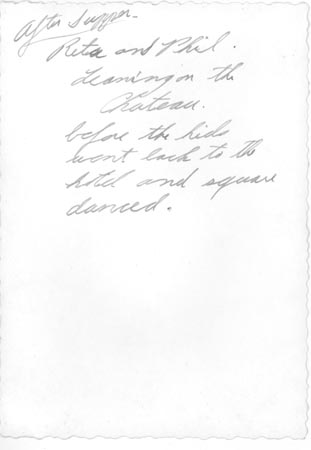 After Supper.
Rita and Phil.
Leaning on the
Chateau.
before the kids
went back to the
hotel and square
danced.